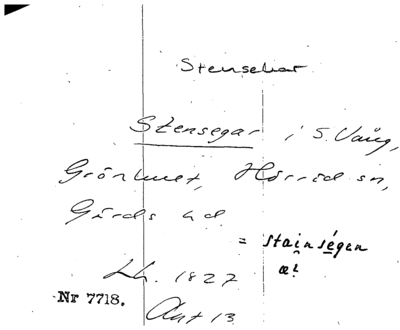 Stensekar
Stensegar i S. Vång,
Grönhult, Hörröd sn,
Gärds hd.
= stainségan
Lh. 1827
Nr 7718.
Akt 13